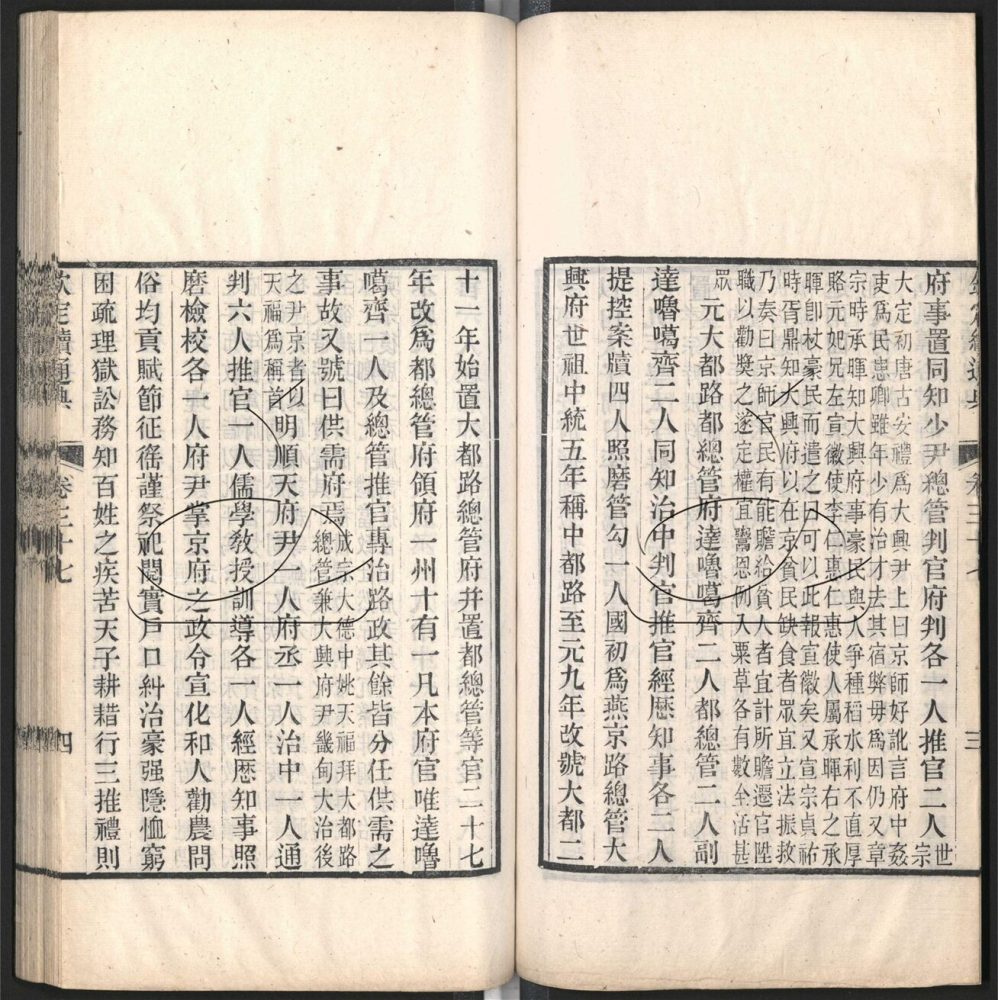 府事置同知少尹總管判官府判各一人推官二人世宗
大定初唐古安禮爲大興尹上曰京師好訛言府中姦
吏爲民患卿雖年少有治才去其宿弊毋爲因仍又章
宗時承暉知大興府事豪民與人爭種稻水利不直厚
賂元妃兄左宣徽使李仁惠仁惠使人屬承暉右之承
暉卽杖豪民而遣之曰可以此報宣徽矣又宣宗貞祐
時胥鼎知大興府以在京貧民缺食者眾宜立法振救
乃奏曰京師官民有能贍給貧人者宜計所贍遷官陞
職以勸獎之遂定權宜鬻恩例入粟草各有數全活甚
眾 元大都路都總管府達嚕噶齊二人都總管二人副
達嚕噶齊二人同知治中判官推官經歷知事各二人
提控案牘四人照磨管勾一人國初爲燕京路總管大
興府世祖中統五年稱中都路至元九年改號大都二
三
十一年始置大都路總管府幷置都總管等官二十七
年改爲都總管府領府一州十有一凡本府官唯達嚕
噶齊一人及總管推官專治路政其餘皆分任供需之
事故又號曰供需府焉成宗大德中姚天福拜大都路
總管兼大興府尹畿甸大治後
之尹京者以
天福爲稱首 明順天府尹一人府丞一人治中一人通
判六人推官一人儒學敎授訓導各一人經歷知事照
磨檢校各一人府尹掌京府之政令宣化和人勸農問
俗均貢賦節征徭謹祭祀閱實戶口糾治豪强隱恤窮
困疏理獄訟務知百姓之疾苦天子耕耤行三推禮則
欽定續通典
卷三十七
四